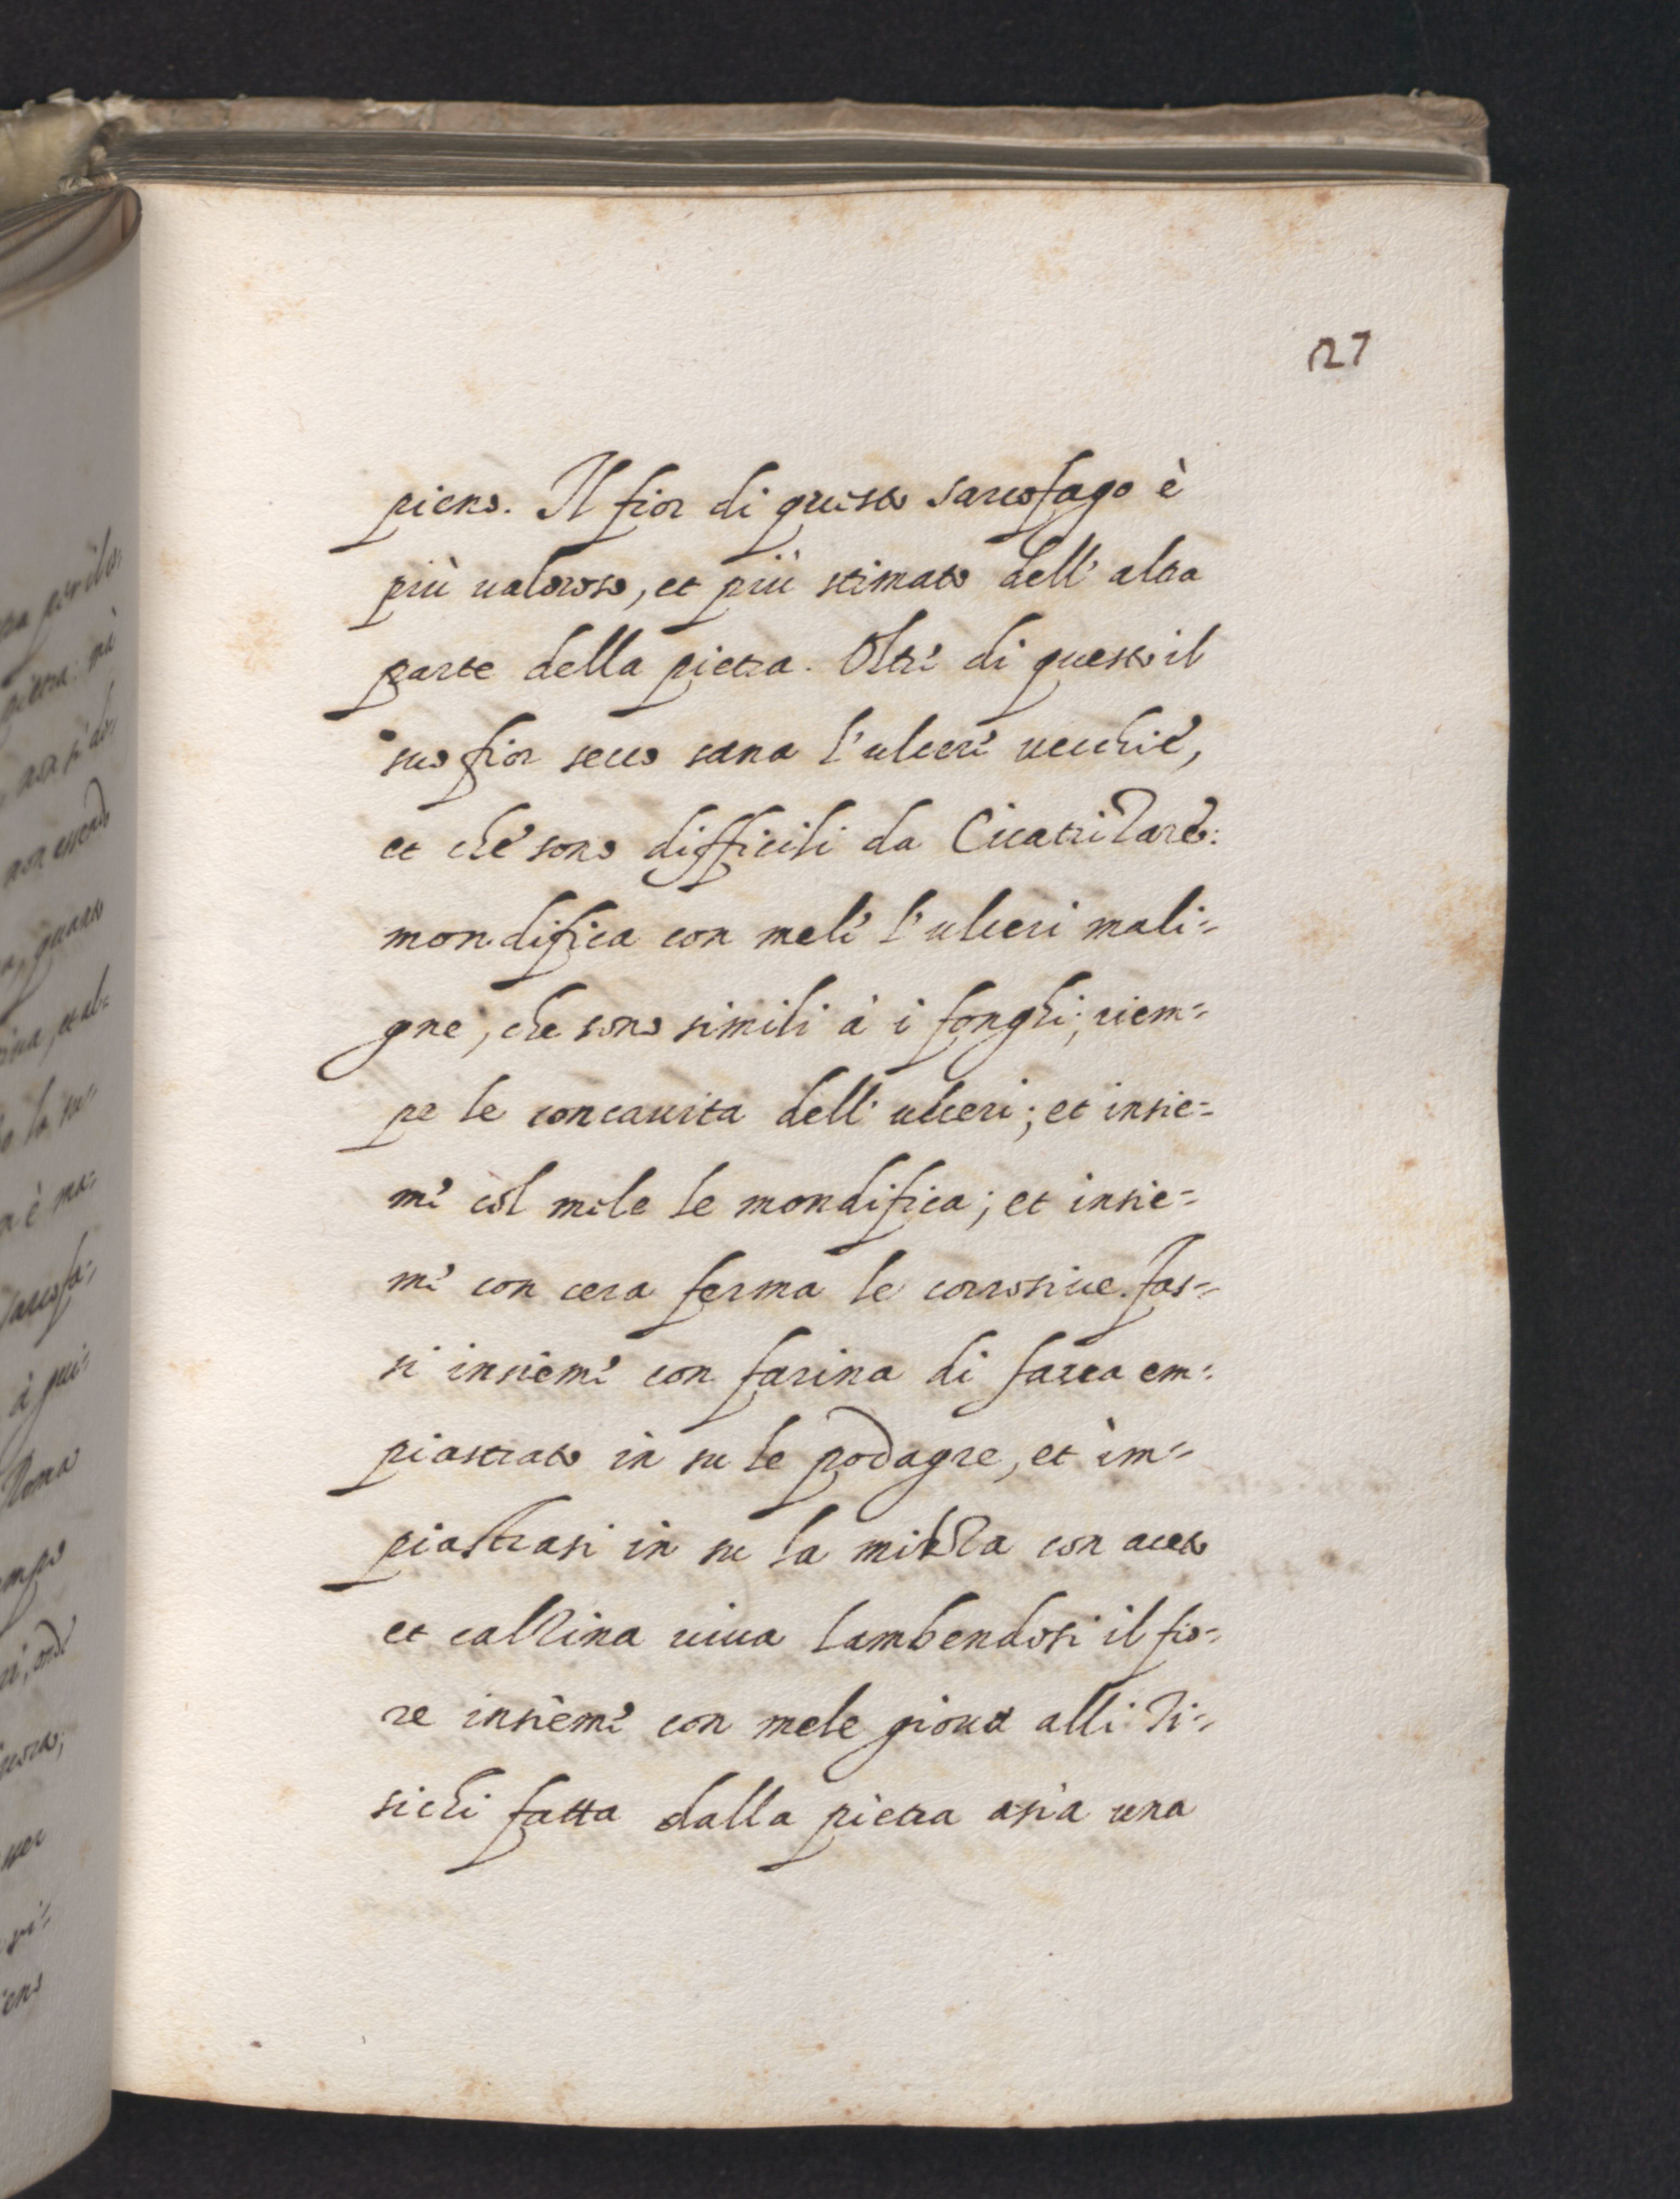 127
pieno. Il fior di questo sarcofago è
più ualoroso, et più stimato dell' altra
parte della pietra. Oltre di questo il
suo fior secco sana l'ulcere uecchie,
et che sono difficili da Cicatrizare:
mondifica con mele l'ulceri mali=
gne, che sono simili à i fonghi; riem=
pe le concauita dell' ulceri; et insie=
me col mele le mondifica; et insie=
me con cera ferma le corrosiue. fas=
si insieme con farina di faua em=
piastrato in su le podagre, et im=
piastrasi in su la milza con aceto
et calzina uiua lambendosi il fio=
re insieme con mele gioua alli ti=
sichi fatta dalla pietra asia una